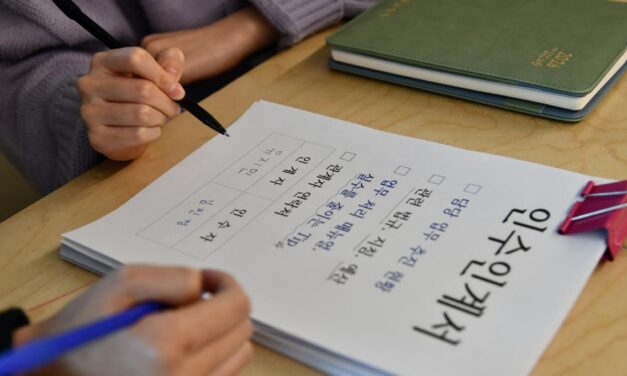 인수인계서
□ 담당 업무 추진 현황
□ 관련 법규, 지침, 예산
□ 업무 처리 매뉴얼,
실수를 줄이는 Tip
□ 관계자 연락처
인 계 자 인 수 자
김민정
2026